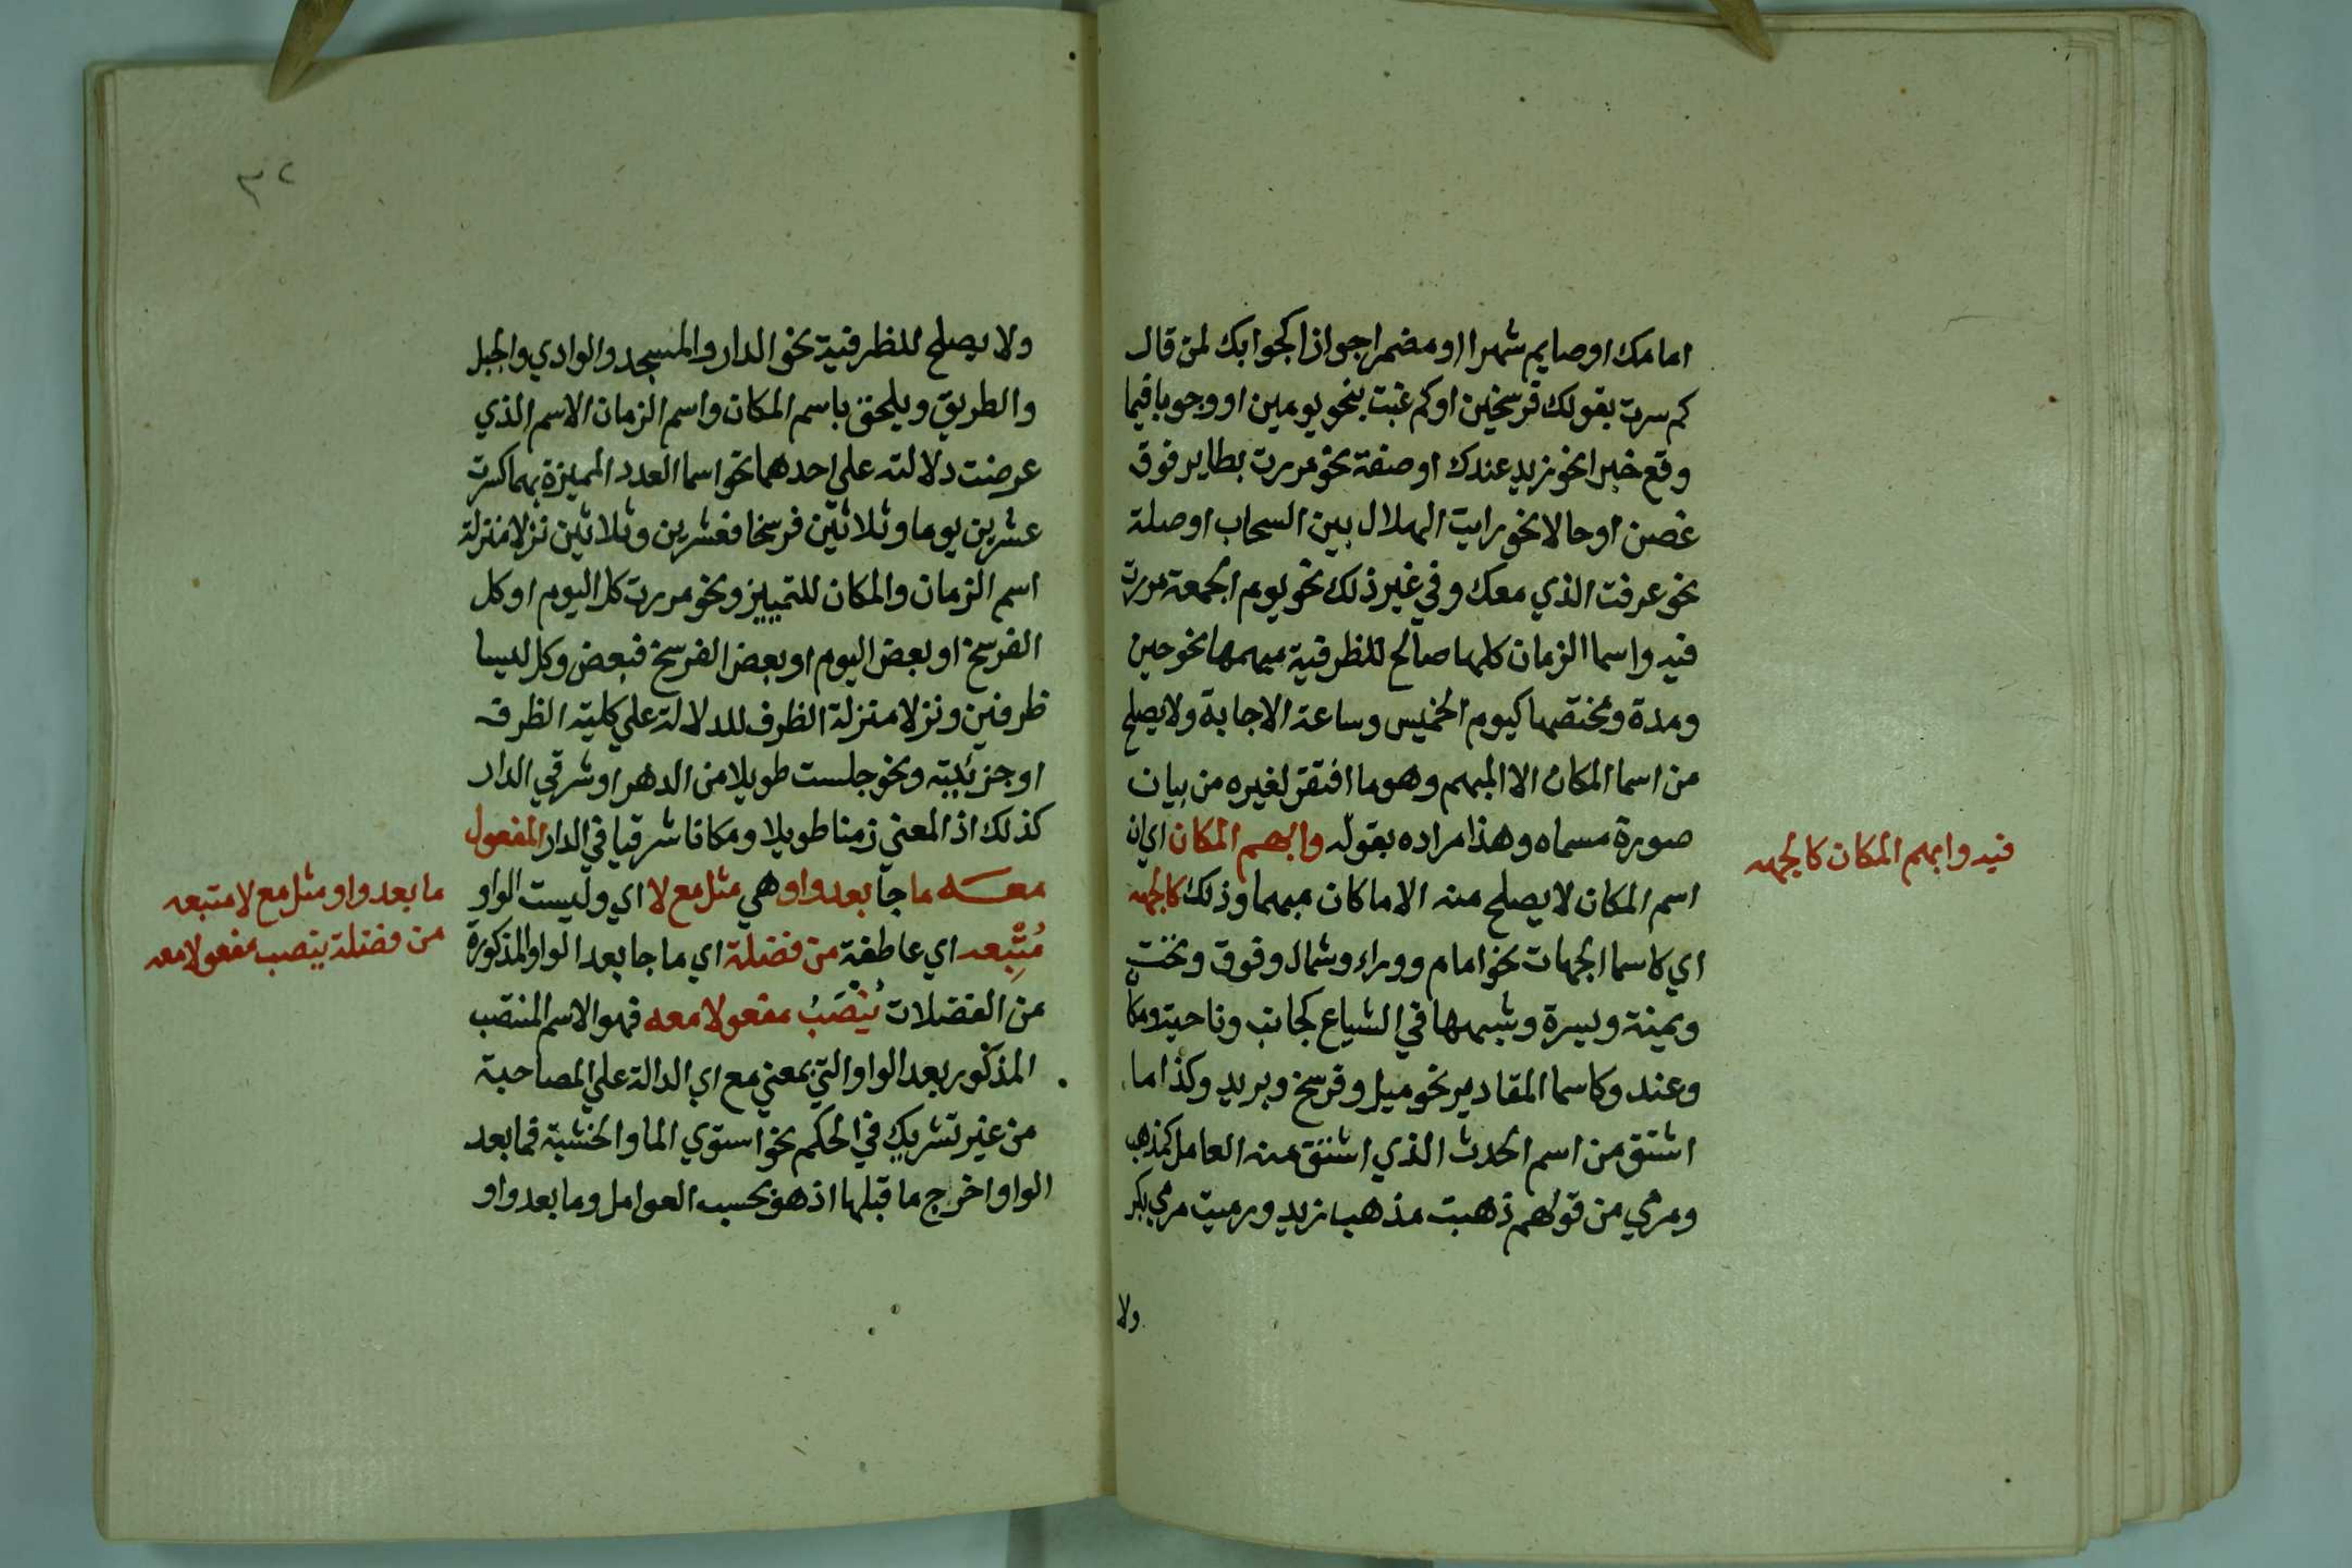 امامك او صايم شهرا او مضمرا جوازا كجوابك لمن قال
كم سرت بقولك فرسخين او كم غبت بنحو يومين او وجوبا فيما
وقع خبرا نحو زيد عندك او صفة نحو مررت بطاير فوق
غصن او حالا نحو رايت الهلال بين السحاب او صلة
نحو عرفت الذي معك وفي غير ذلك نحو يوم الجمعة مررت
فيه واسما الزمان كلها صالح للظرفية مبهمها نحو حين
ومدة ومختصها كيوم الخميس وساعة الاجابة ولا يصلح
من اسما المكان الا المبهم وهو ما افتقر لغيره من بيان
صورة مسماه وهذا مراده بقوله وابهم المكان اي ان
اسم المكان لا يصلح منه الا ما كان مبهما وذلك كالجهه
اي كاسما الجهات نحو امام ووراء وشمال وفوق وتحت
ويمنة ويسرة وشبهها في الشياع كجانب وناحية ومكان
وعند وكاسما المقادير نحو ميل وفرسخ وبريد وكذا ما
اشتق من اسم الحدث الذي اشتق منه العامل كمذهب
ومرمي من قولهم ذهبت مذهب زيد ورميت مرمي بكر
ولا
فيه وابهم المكان كالجهه
٣٢
ولا يصلح للظرفية نحو الدار والمسجد والوادي والجبل
والطريق ويلحق باسم المكان واسم الزمان الاسم الذي
عرضت دلالته علي احدهما نحو اسما العدد المميزة بهما كسرت
عشرين يوما وثلاثين فرسخا فعشرين وثلاثين نزلا منزلة
اسم الزمان والمكان للتمييز ونحو مررت كل اليوم او كل
الفرسخ او بعض اليوم او بعض الفرسخ فبعض وكل ليسا
ظرفين ونزلا منزلة الظرف للدلالة علي كلية الظرف
او جزئيته ونحو جلست طويلا من الدهر او شرقي الدار
كذلك اذ المعني زمنا طويلا ومكانا شرقيا في الدار المفعول
معه ما جا بعد واو هي مثل مع لا اي وليست الواو
مُتْبِعه اي عاطفة من فضلة اي ما جا بعد الواو المذكورة
من الفضلات يُنْصَبُ مفعولا معه فهو الاسم المنتصب
المذكور بعد الواو التي بمعني مع اي الدالة علي المصاحبة
من غير تشريك في الحكم نحو استوي الما والخشبة فما بعد
الواو اخرج ما قبلها اذ هو بحسب العوامل وما بعد واو
ما بعد واو مثل مع لا متبعه
من فضلة ينصب مفعولا معه